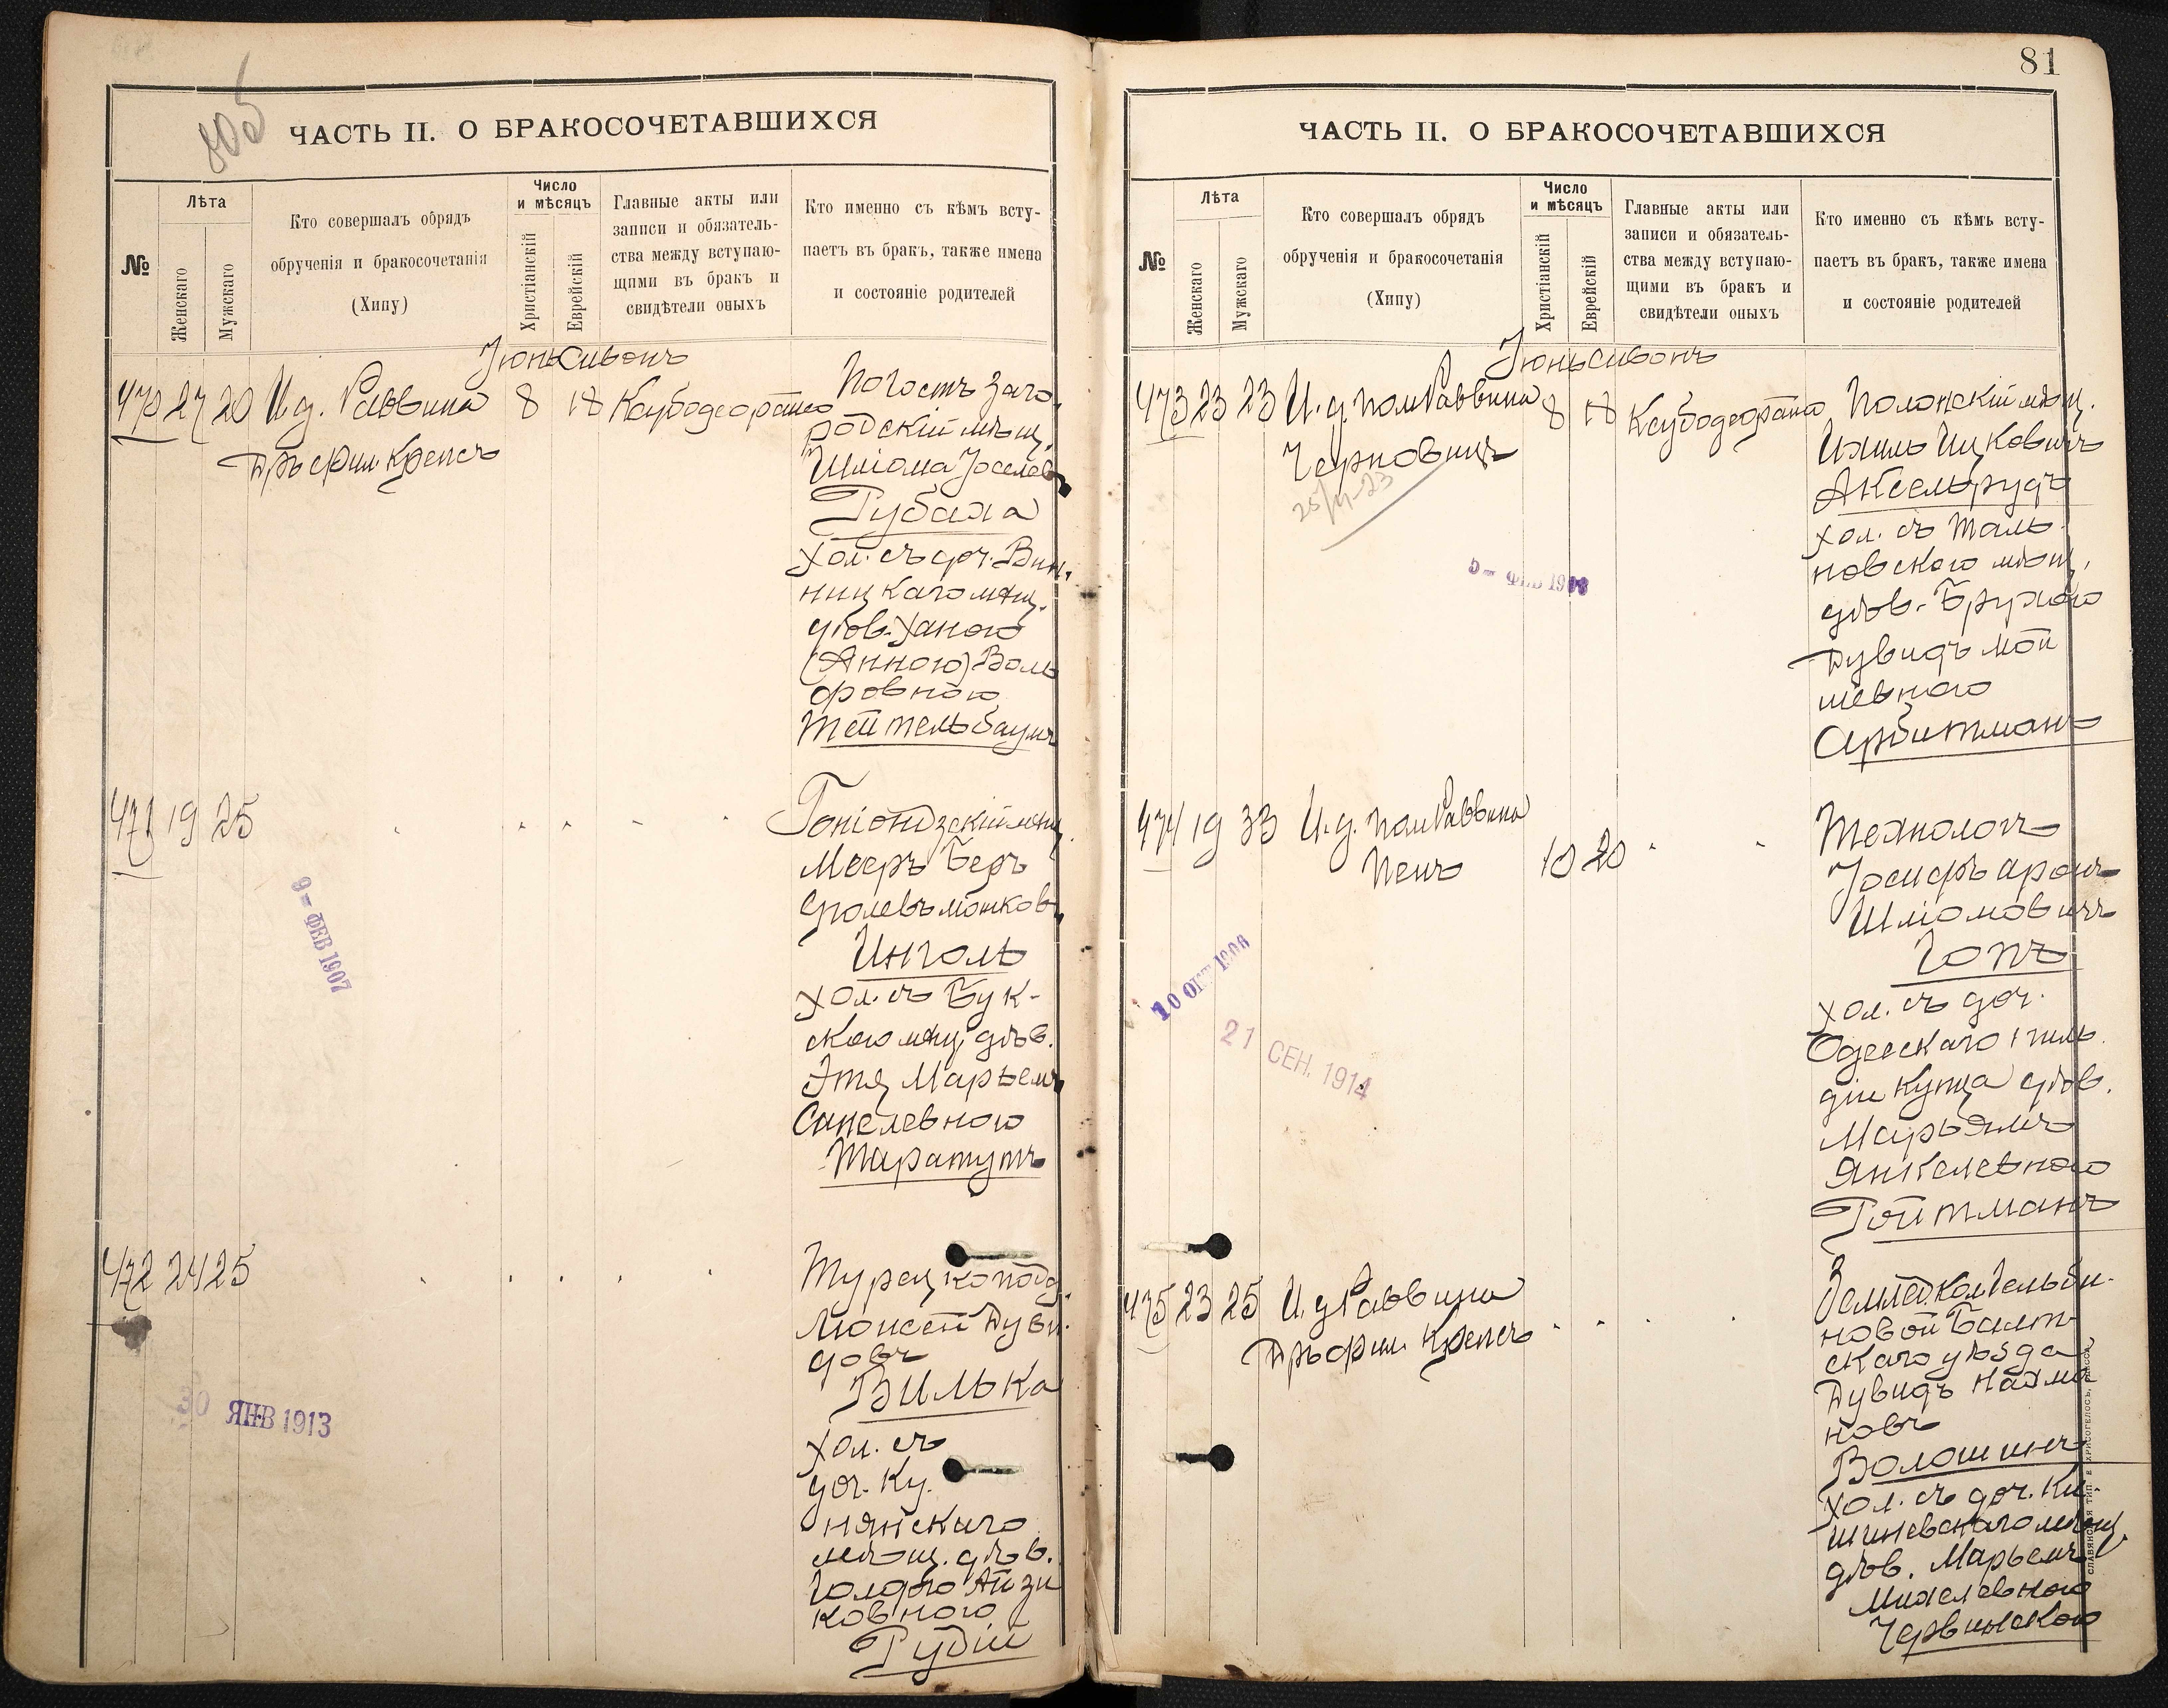 80об
ЧАСТЬ II. О БРАКОСОЧЕТАВШИХСЯ
№
Лѣта
Женскаго
Мужскаго
Кто совершалъ обрядъ
обрученія и бракосочетанія
(Хипу)
Число
и мѣсяцъ
Христіанскій
Еврейскій
Главные акты или
записи и обязатель-
ства между вступаю-
щими въ бракъ и
свидѣтели оныхъ
Кто именно съ кѣмъ всту-
паетъ въ бракъ, также имена
и состояніе родителей
Іюнь Сивонъ
470 27 20 И.д. Раввина 8 18
Дръ фил. Крепсъ
Погостъ Заго-
родскій мѣщ.
Шліома Іоселев
Рубаха
хол. съ доч. Вин-
ницкаго мѣщ.
дѣв. Ханою
(Анною) Воль
фовною
Тейтельбаумъ
471 19 25
Гоніондзскій мѣщ.
Мееръ Беръ
Сролевъ Мошков
Инголь
хол. съ Бук-
скою мѣщ. дѣв.
Этя Марьемъ
Сапелевною
Таратутъ
9 - ФЕВ 1907
472 24 25
Турецкоподд.
Моисей Дуви-
довъ
Вилька
хол. съ
доч. Ку-
нянскаго
мѣщ. дѣв.
Голдою Айзи
ковною
Рудій
30 ЯНВ 1913
81
ЧАСТЬ II. О БРАКОСОЧЕТАВШИХСЯ
№
Лѣта
Женскаго
Мужскаго
Кто совершалъ обрядъ
обрученія и бракосочетанія
(Хипу)
Число
и мѣсяцъ
Христіанскій
Еврейскій
Главные акты или
записи и обязатель-
ства между вступаю-
щими въ бракъ и
свидѣтели оныхъ
Кто именно съ кѣмъ всту-
паетъ въ бракъ, также имена
и состояніе родителей
Іюнь Сивонъ
473 23 23 И.д. пом Раввина 8 18
Черновицъ
Полонскій мѣщ.
Ихиль Ицковичъ
Аксельрудъ
хол. съ Таль-
новскою мѣщ.
дѣв. Брухою
Дувидъ Мой
шевною
Арбитманъ
5 - ФЕВ 19
474 19 33 И.д. пом Раввина
Пенъ 10 20
Технологъ
Іосифъ Аронъ
Шліомовичъ
Гопъ
хол. съ доч.
Одесскаго 1 гиль-
діи купца дѣв.
Марьямъ
Янкелевною
Ройтманъ
10 ОКТ 1906
21 СЕН. 1914
475 23 25 И.д. Раввина
Дръ фил. Крепсъ
новой Балт-
скаго уѣзда
Дувидъ Нахма
новъ
Волошинъ
хол. съ доч. Ки-
шиневскаго мѣщ.
дѣв. Марьемъ
Михелевною
Червинскою
СЛАВЯНСКАЯ ТИП. Е. ХРИСОГЕЛОСЪ, ОДЕССА